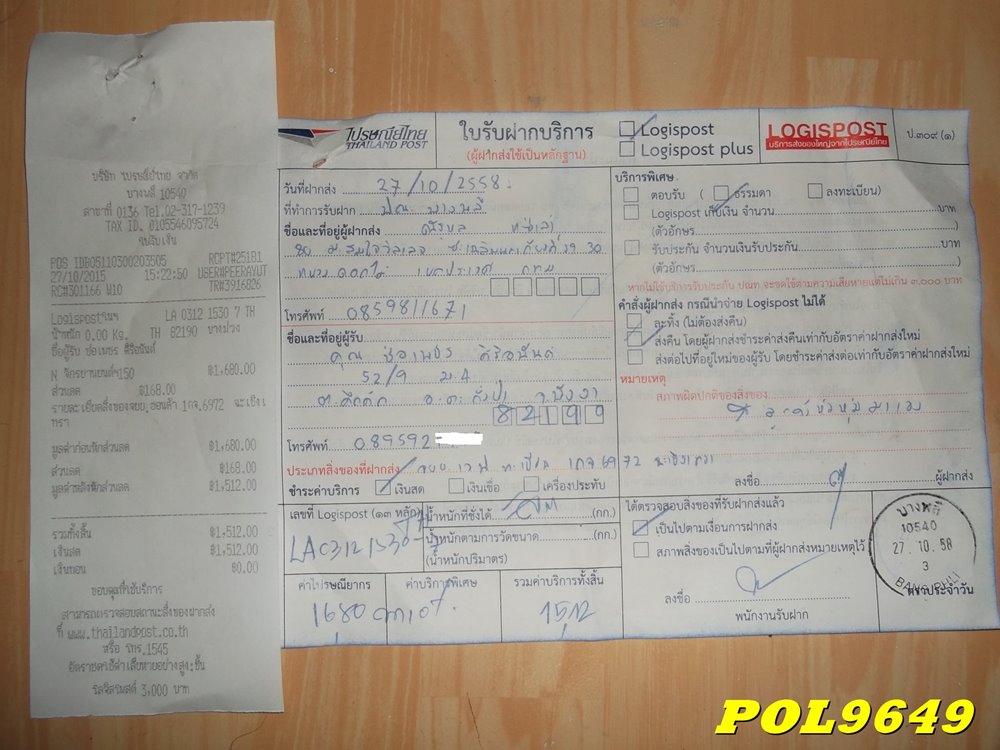 บริษัท ไปรษณีย์ไทย จำกัด
บางพลี 10540
สาขาที่ 0136 Tel.02-317-1239
TAX ID. 0105546095724
ใบรับเงิน
POS IDB05110300203505 RCPT#25181
27/10/2015 15:22:50 USER#PEERAYUT
RC#301166 W10 TR#3916826
Logispostในฯ LA 0312 1530 7 TH
น้ำหนัก 0.00 Kg. TH 82190 บางม่วง
ชื่อผู้รับ ช่อเพชร คีรีอนันต์
N จักรยานยนต์<150 ฿1,680.00
ส่วนลด ฿168.00
รายละเอียดสิ่งของจยย.ฮอนด้า 1กจ.6972 ฉะเชิงเ
ทรา
มูลค่าก่อนหักส่วนลด ฿1,680.00
ส่วนลด ฿168.00
มูลค่าหลังหักส่วนลด ฿1,512.00
รวมทั้งสิ้น ฿1,512.00
เงินสด ฿1,512.00
เงินทอน ฿0.00
ขอบคุณที่ใช้บริการ
สามารถตรวจสอบสถานะสิ่งของฝากส่ง
ที่ www.thailandpost.co.th
หรือ โทร.1545
อัตราชดใช้ค่าเสียหายอย่างสูง:ชิ้น
โลจิสโพสต์ 3,000 บาท
ไปรษณีย์ไทย
THAILAND POST
ใบรับฝากบริการ
(ผู้ฝากส่งใช้เป็นหลักฐาน)
Logispost
Logispost plus
LOGISPOST
บริการส่งของใหญ่จากไปรษณีย์ไทย
ป.๓๐๙ (๑)
วันที่ฝากส่ง 27/10/2558
ที่ทำการรับฝาก ปณ. บางพลี
ชื่อและที่อยู่ผู้ฝากส่ง
โทรศัพท์ 0859811671
ชื่อและที่อยู่ผู้รับ
คุณ ช่อเพชร คีรีอนันต์
52/9 ม.4
ต.คึกคัก อ.ตะกั่วป่า จ.พังงา
82190
โทรศัพท์ 089592
ประเภทสิ่งของที่ฝากส่ง ทะเบียน 1กจ 6972 ฉะเชิงเทรา
ชำระค่าบริการ เงินสด เงินเชื่อ เครื่องประทับ
เลขที่ Logispost (๑๓ หลัก)
LA031215307
น้ำหนักที่ชั่งได้ (กก.)
น้ำหนักตามการวัดขนาด (กก.)
(น้ำหนักปริมาตร)
ค่าไปรษณียากร
1680
ค่าบริการพิเศษ
รวมค่าบริการทั้งสิ้น
1512
บริการพิเศษ
ตอบรับ ( ธรรมดา ลงทะเบียน)
Logispost เก็บเงิน จำนวน บาท
(ตัวอักษร )
รับประกัน จำนวนเงินรับประกัน บาท
(ตัวอักษร )
หากไม่ใช้บริการรับประกัน ปณท จะชดใช้ตามความเสียหายแต่ไม่เกิน ๓,๐๐๐ บาท
คำสั่งผู้ฝากส่ง กรณีนำจ่าย Logispost ไม่ได้
ละทิ้ง (ไม่ต้องส่งคืน)
ส่งคืน โดยผู้ฝากส่งชำระค่าส่งคืนเท่ากับอัตราค่าฝากส่งใหม่
ส่งต่อไปที่อยู่ใหม่ของผู้รับ โดยชำระค่าส่งต่อเท่ากับอัตราค่าฝากส่งใหม่
หมายเหตุ
สภาพผิดปกติของสิ่งของ
ลงชื่อ ผู้ฝากส่ง
ได้ตรวจสอบสิ่งของที่รับฝากส่งแล้ว
เป็นไปตามเงื่อนการฝากส่ง
สภาพสิ่งของเป็นไปตามที่ผู้ฝากส่งหมายเหตุไว้
ลงชื่อ
พนักงานรับฝาก
บางพลี
10540
27.10.58
3
BANG PHLI
ตราประจำวัน
POL9649